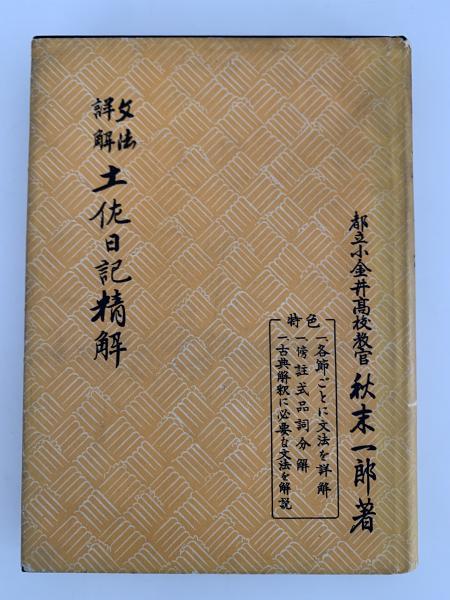 都立小金井高校教官 秋末一郎著
特色
一、各節ごとに文法を詳解
一、傍註式品詞分解
一、古典解釈に必要な文法を解説
文法
詳解
土佐日記精解